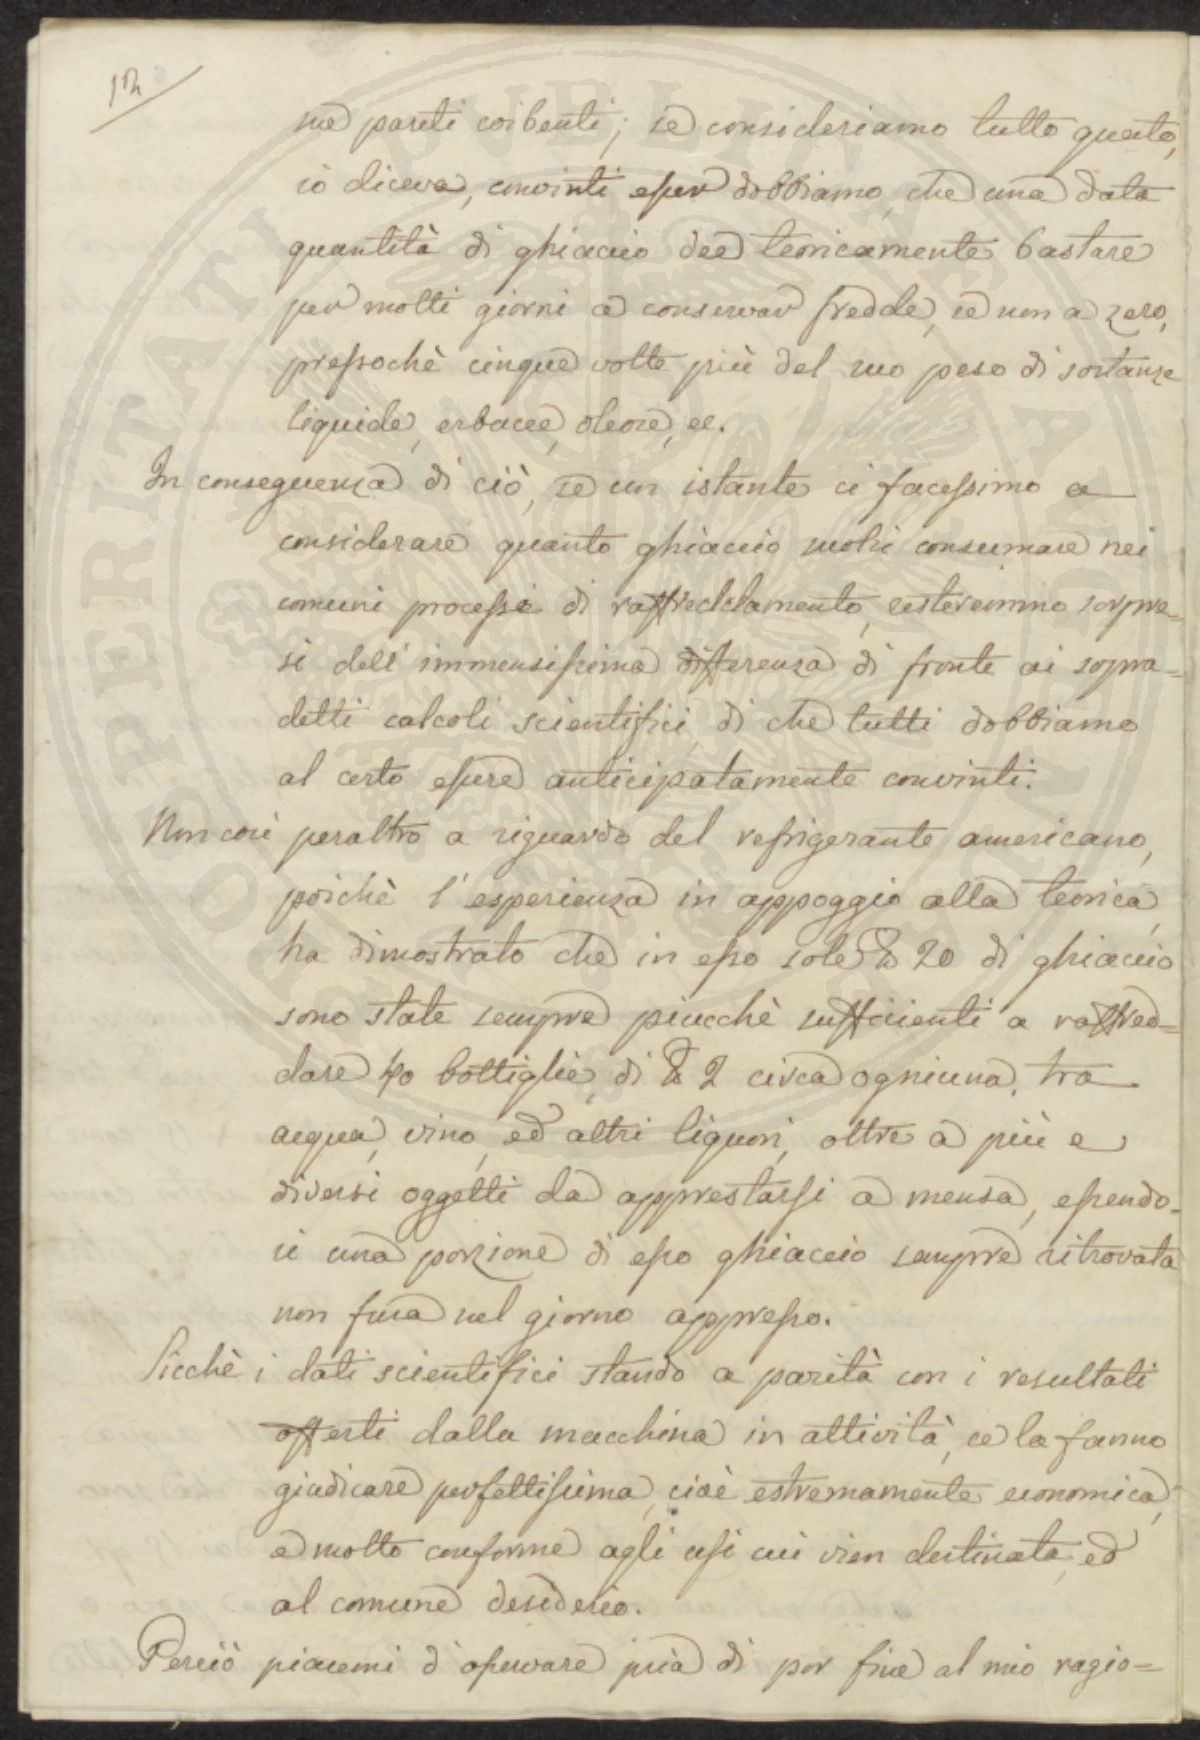 12
sue pareti coibenti; se consideriamo tutto questo,
io diceva, convinti esser dobbiamo, che una data
quantità di ghiaccio dee teoricamente bastare
per molti giorni a conservar fredde, se non a zero,
pressochè cinque volte più del suo peso di sostanze
liquide, erbacee, oleose, ec.
In conseguenza di ciò, se un istante ci facessimo a
considerare quanto ghiaccio suolsi consumare nei
comuni processi di raffreddamento, resteremmo sorpre=
si dell' immensissima differenza di fronte ai sopra=
detti calcoli scientifici, di che tutti dobbiamo
al certo essere anticipatamente convinti.
Non così peraltro a riguardo del refrigerante americano,
poichè l'esperienza in appoggio alla teorica,
ha dimostrato che in esso sole ℔ 20 di ghiaccio
sono state sempre piucchè sufficienti a raffred=
dare 40 bottiglie, di ℔ 2 circa ogniuna, tra
acqua, vino, ed altri liquori, oltre a più e
diversi oggetti da apprestarsi a mensa, essendo=
si una porzione di esso ghiaccio sempre ritrovata
non fusa nel giorno appresso.
Sicchè i dati scientifici stando a parità con i resultati
offerti dalla macchina in attività, ce la fanno
giudicare perfettissima, cioè estremamente economica,
e molto conforme agli usi cui vien destinata, ed
al comune desiderio.
Perciò piacemi d'osservare pria di por fine al mio ragio=
PROSPERITATI PVBLICAE AVGENDAE